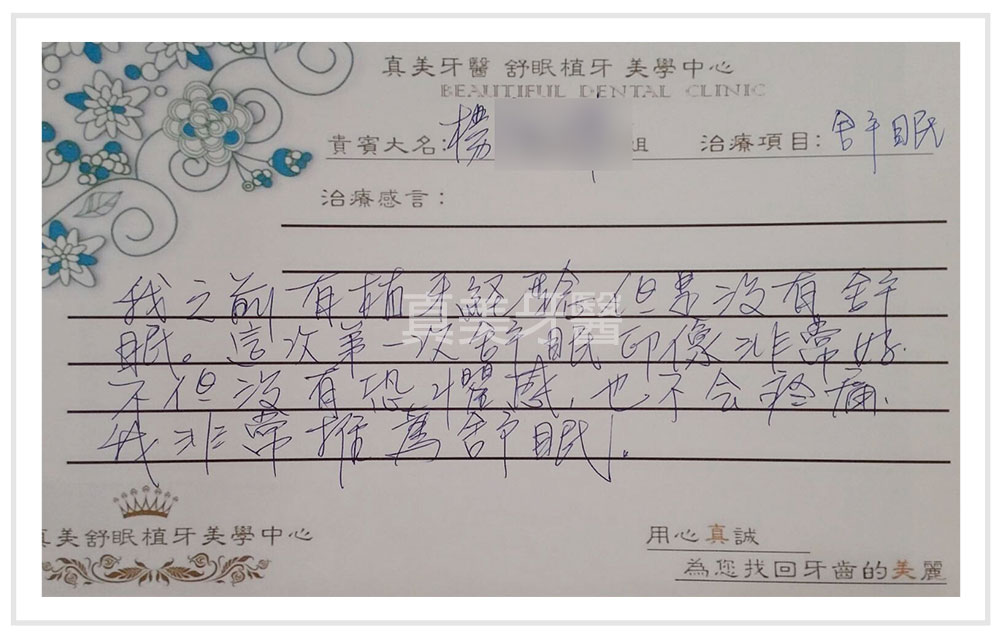 真美牙醫 舒眠植牙 美學中心
BEAUTIFUL DENTAL CLINIC
貴賓大名: 楊 治療項目: 舒眠
治療感言：
我之前有植牙經驗，但是沒有舒
眠。這次第一次舒眠印像非常好
不但沒有恐懼感，也不会疼痛
我非常推薦舒眠！
真美牙醫
真美舒眠植牙美學中心
用心真誠
為您找回牙齒的美麗